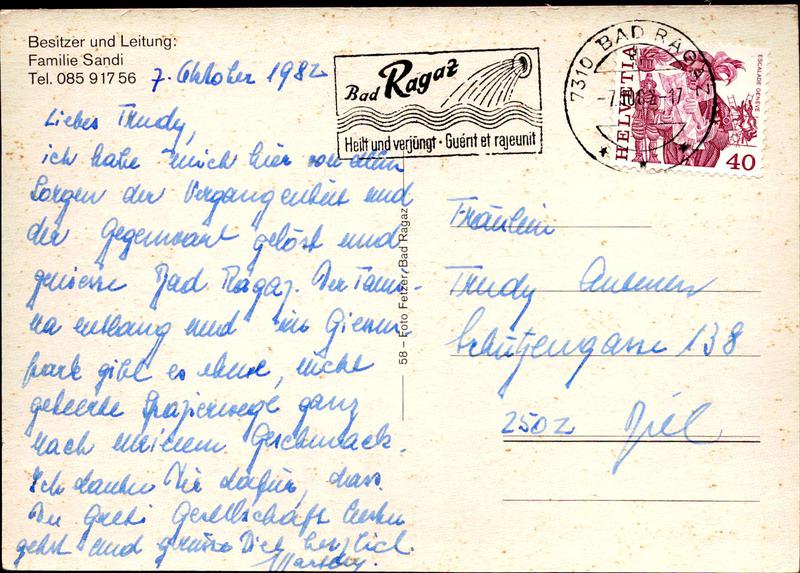 Besitzer und Leitung:
Familie Sandi
Tel. 085 9 17 56
7. Oktober 1982
Liebes Trudy,
ich habe mich hier von allen
Sorgen der Vergangenheit und
der Gegenwart gelöst und
geniesse Bad Ragaz. Der Tami-
na entlang und im Giessen-
park gibt es ebene, nicht
geteerte Spazierwege ganz
nach meinem Geschmack.
Ich danke Dir dafür, dass
Du Greti Gesellschaft leisten
gehst und grüsse Dich herzlich.
58 – Foto Fetzer, Bad Ragaz
Bad Ragaz
Heilt und verjüngt · Guérit et rajeunit
7310 BAD RAGAZ
-7.10.82-17
HELVETIA
ESCALADE GENÈVE
40
Fräulein
Trudy
Schützengasse 138
2502 Biel